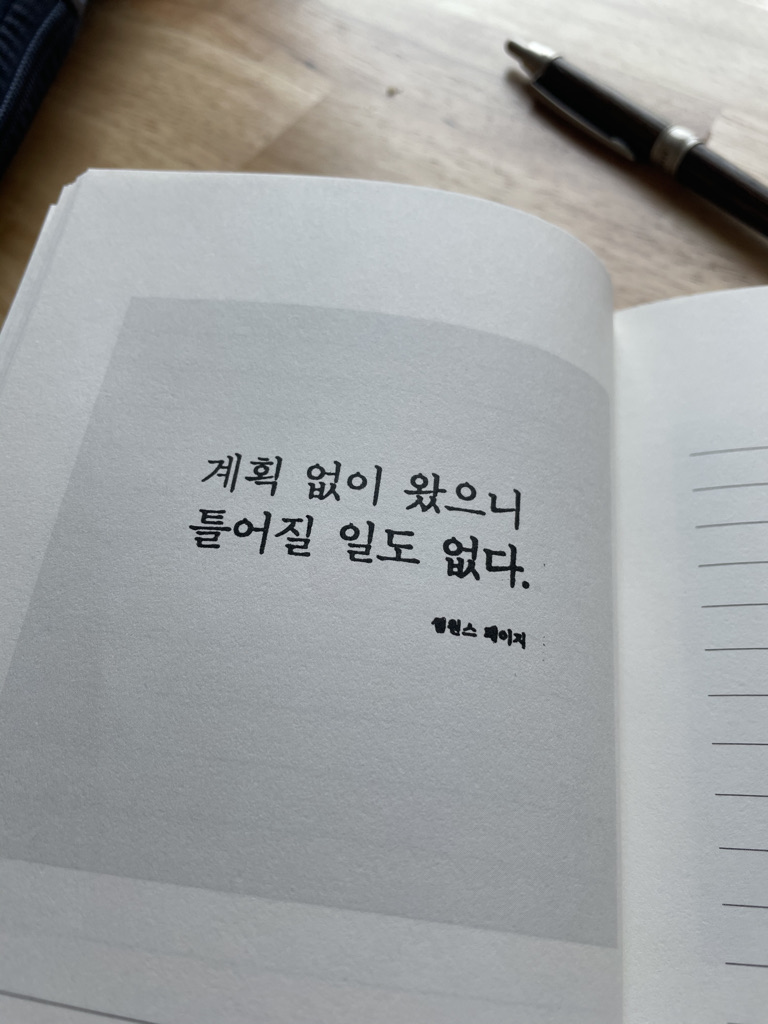 계획 없이 왔으니
틀어질 일도 없다.
페이지